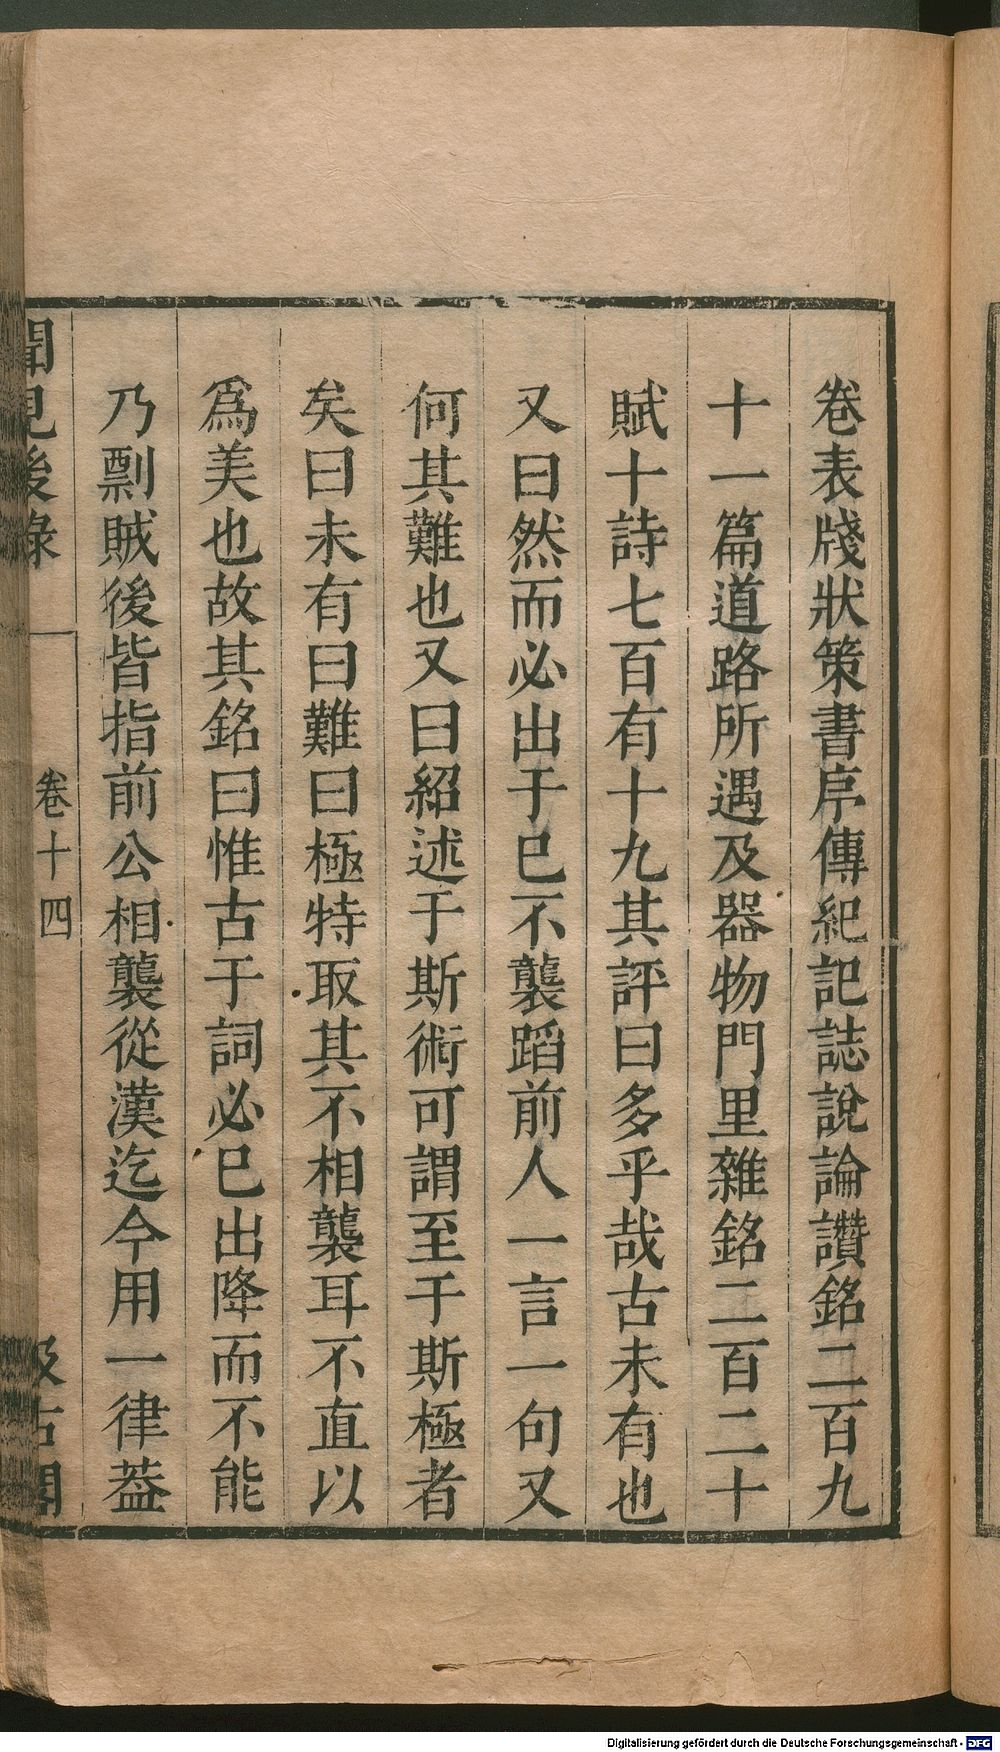 卷表牋狀策書序傳紀記誌說論讚銘二百九
十一篇道路所遇及器物門里雜銘二百二十
賦十詩七百有十九其評曰多乎哉古未有也
又曰然而必出于已不襲蹈前人一言一句又
何其難也又曰紹述于斯術可謂至于斯極者
矣曰未有曰難曰極特取其不相襲耳不直以
爲美也故其銘曰惟古于詞必已出降而不能
乃剽賊後皆指前公相襲從漢迄今用一律葢
聞見後錄 卷十四 汲古閣
Digitalisierung gefördert durch die Deutsche Forschungsgemeinschaft - DFG